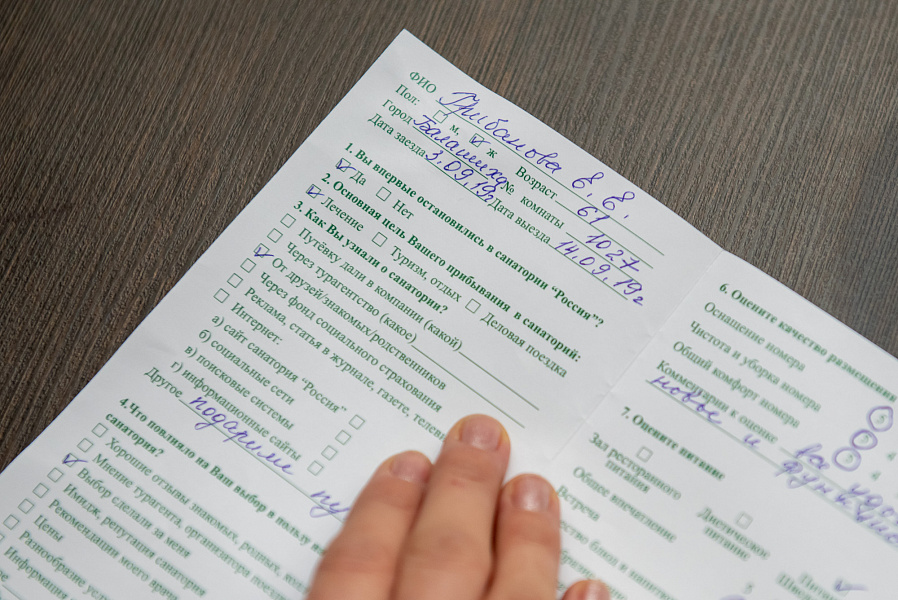 ФИО Грибанова Е. Е.
Пол: м, ж Возраст 61
Город Балашиха № комнаты 1027
Дата заезда 3.09.19г Дата выезда 14.09.19г
1. Вы впервые остановились в санатории “Россия”?
Да Нет
2. Основная цель Вашего прибывания в санаторий:
Лечение Туризм, отдых Деловая поездка
3. Как Вы узнали о санатории?
Путёвку дали в компании (какой)
Через турагентство (какое)
От друзей/знакомых/родственников
Через фонд социального страхования
Реклама, статья в журнале, газете,
Интернет:
а) сайт санатория “Россия”
б) социальные сети
в) поисковые системы
г) информационные сайты
Другое подарили
4.Что повлияло на Ваш выбор в пользу
санатория?
Хорошие отзывы знакомых, родных,
Мнение турагента, организатора
Выбор сделали за меня
Имидж, репутация санатория
Рекомендации моего врача
Цены
Разнообразие
Информация
6. Оцените качество размещения
Оснащение номера
Чистота и уборка номера
Общий комфорт номера
Комментарии к оценке
новое и
7. Оцените питание
Зал ресторанного
питания
Диетическое
питание
Общее впечатление
Встреча